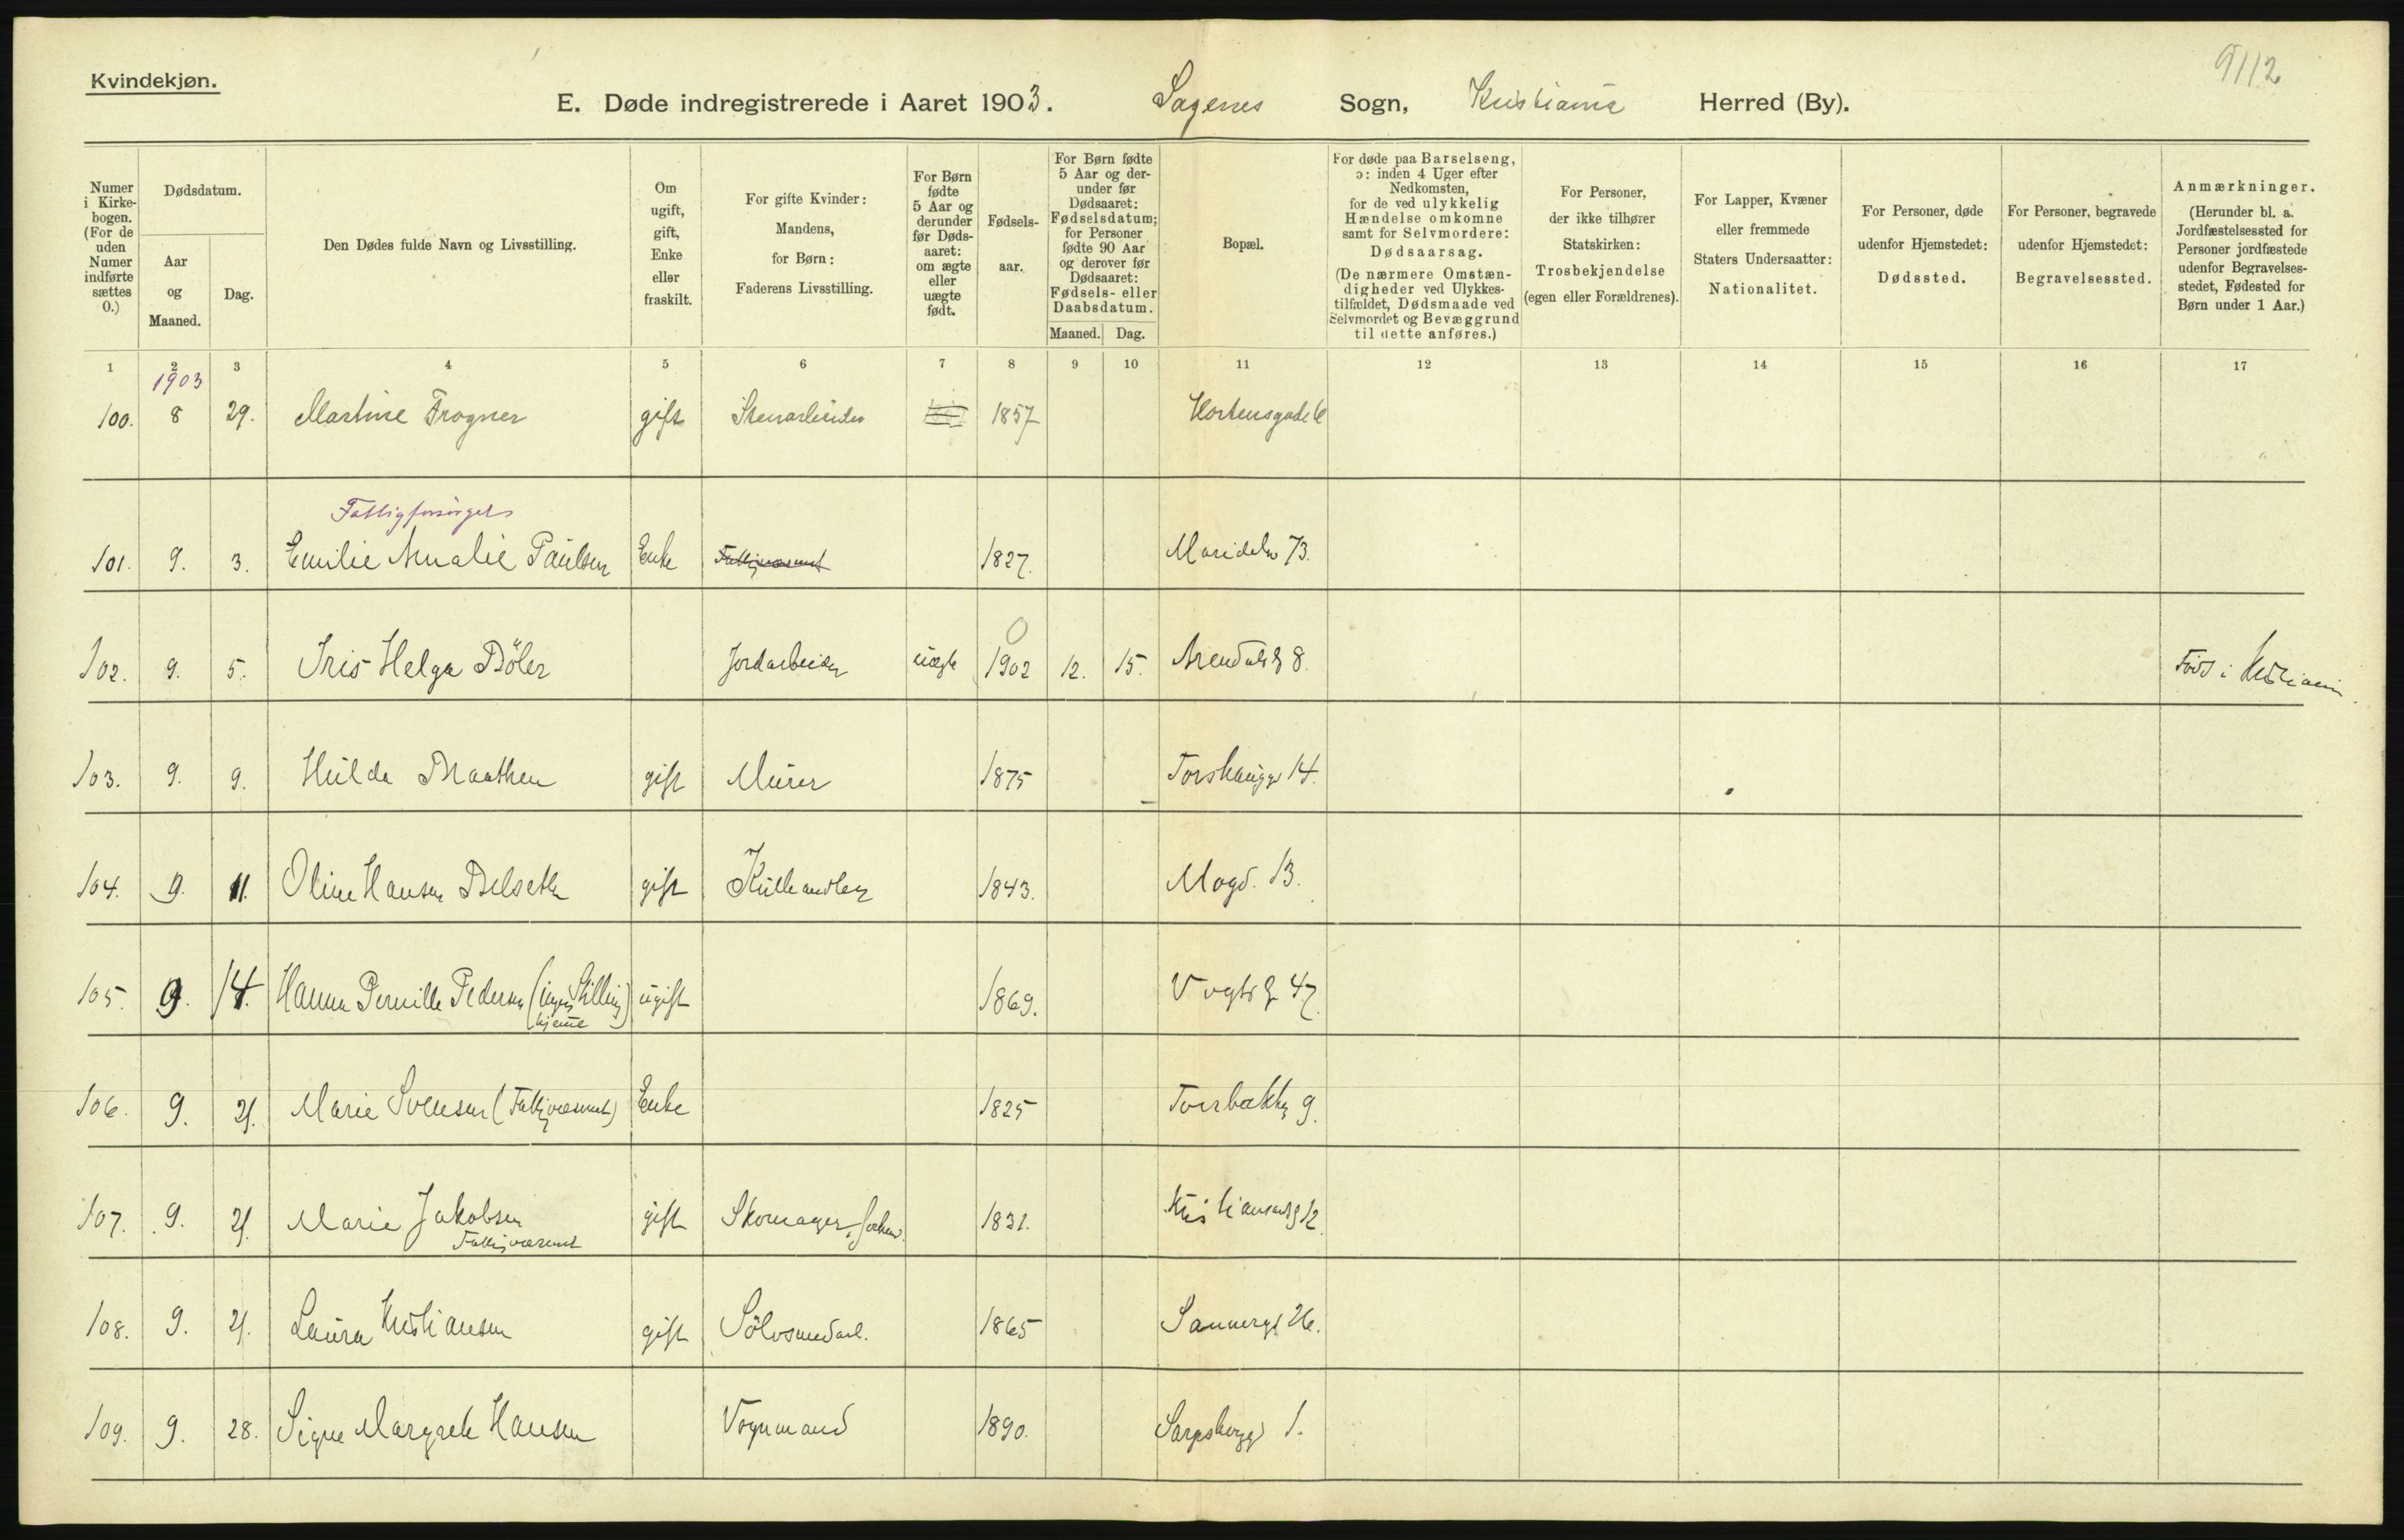 9112
Kvindekjøn.
E. Døde indregistrerede i Aaret 1903. Sagenes Sogn, Kristiania Herred (By).
Numer i Kirkebogen. (For de uden Numer indførte sættes 0.)
Dødsdatum.
Aar og Maaned.
Dag.
Den Dødes fulde Navn og Livsstilling.
Om ugift, gift, Enke eller fraskilt.
For gifte Kvinder: Mandens, for Børn: Faderens Livsstilling.
For Børn fødte 5 Aar og derunder før Dødsaaret: om ægte eller uægte født.
Fødselsaar.
For Børn fødte 5 Aar og derunder før Dødsaaret: Fødselsdatum; for Personer fødte 90 Aar og derover før Dødsaaret: Fødsels- eller Daabsdatum.
Maaned. Dag.
Bopæl.
For døde paa Barselseng, ɔ: inden 4 Uger efter Nedkomsten, for de ved ulykkelig Hændelse omkomne samt for Selvmordere: Dødsaarsag. (De nærmere Omstændigheder ved Ulykkestilfældet, Dødsmaade ved Selvmordet og Bevæggrund til dette anføres.)
For Personer, der ikke tilhører Statskirken: Trosbekjendelse (egen eller Forældrenes).
For Lapper, Kvæner eller fremmede Staters Undersaatter: Nationalitet.
For Personer, døde udenfor Hjemstedet: Dødssted.
For Personer, begravede udenfor Hjemstedet: Begravelsessted.
Anmærkninger. (Herunder bl. a. Jordfæstelsessted for Personer jordfæstede udenfor Begravelsesstedet, Fødested for Børn under 1 Aar.)
1 2 3 4 5 6 7 8 9 10 11 12 13 14 15 16 17
1903
100. 8 29. Martine Frogner gift Stenarbeider 1857 Hortensgade 6
Fattigforsørget
101. 9. 3. Emilie Amalie Paulsen Enke Fattigvæsenet 1827. Maridalsv 73.
0
102. 9. 5. Iris Helga Böler Jordarbeider uægte 1902 12. 15. Arendalsg 8. Född i Kristiania
103. 9. 9. Hulda Braathen gift Murer 1875 Torshauggd 14.
104. 9. 11. Oline Hansen Belseth gift Kulhandler 1843. Mogd. 13.
105. 9. 14. Hanna Pernille Pedersen (ingen Stilling) ugift 1869. Vogtsg 47.
hjeme
106. 9. 21. Marie Svensen (Fattigvæsenet) Enke 1825 Torsbakkg 9.
107. 9. 21. Marie Jakobsen gift Skomager 1831. Kristiansandsg 12.
Fattigvæsenet
108. 9. 21. Laura Kristiansen gift Sölvsmedarb. 1865 Sannergd 26.
109. 9. 28. Signe Margrete Hansen Vognmand 1890. Sarpsborggd 1.